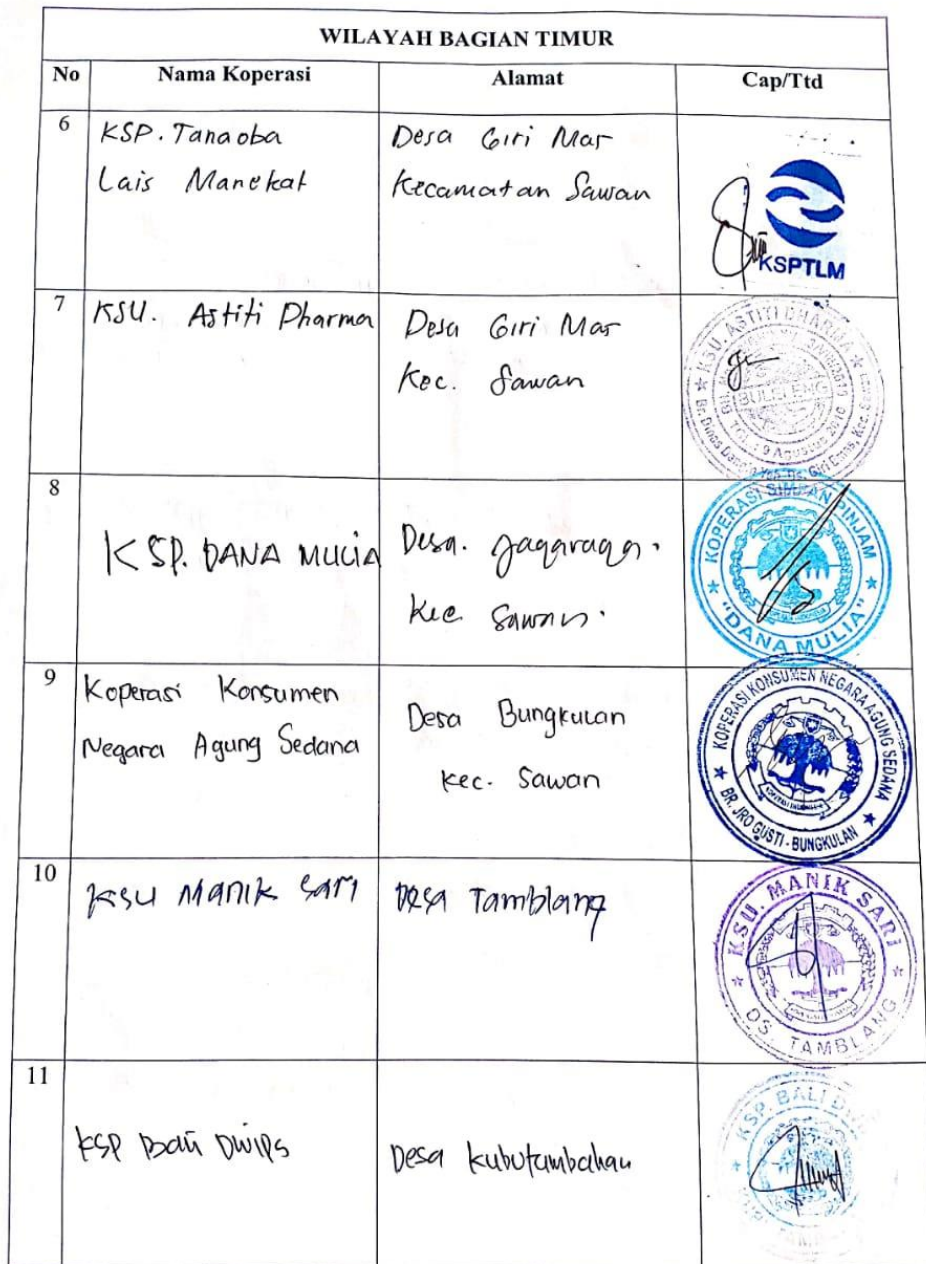 WILAYAH BAGIAN TIMUR
No Nama Koperasi Alamat Cap/Ttd
6 KSP. Tanaoba Desa Giri Mas
Lais Manekat Kecamatan Sawan
KSPTLM
7 KSU. Astiti Dharma Desa Giri Mas
Kec. Sawan
KSU. ASTITI DHARMA
BULELENG
TGL : 9 Agustus 2010
8 KSP. DANA MULIA Desa. Jagaraga.
Kec. Sawan.
KOPERASI SIMPAN PINJAM
"DANA MULIA"
9 Koperasi Konsumen Desa Bungkulan
Negara Agung Sedana Kec. Sawan
KOPERASI KONSUMEN NEGARA AGUNG SEDANA
KOPERASI INDONESIA
BR. JRO GUSTI - BUNGKULAN
10 KSU Manik Sari Desa Tamblang
KSU. MANIK SARI
DS. TAMBLANG
11 KSP Bali Dwipa Desa Kubutambahan
KSP. BALI